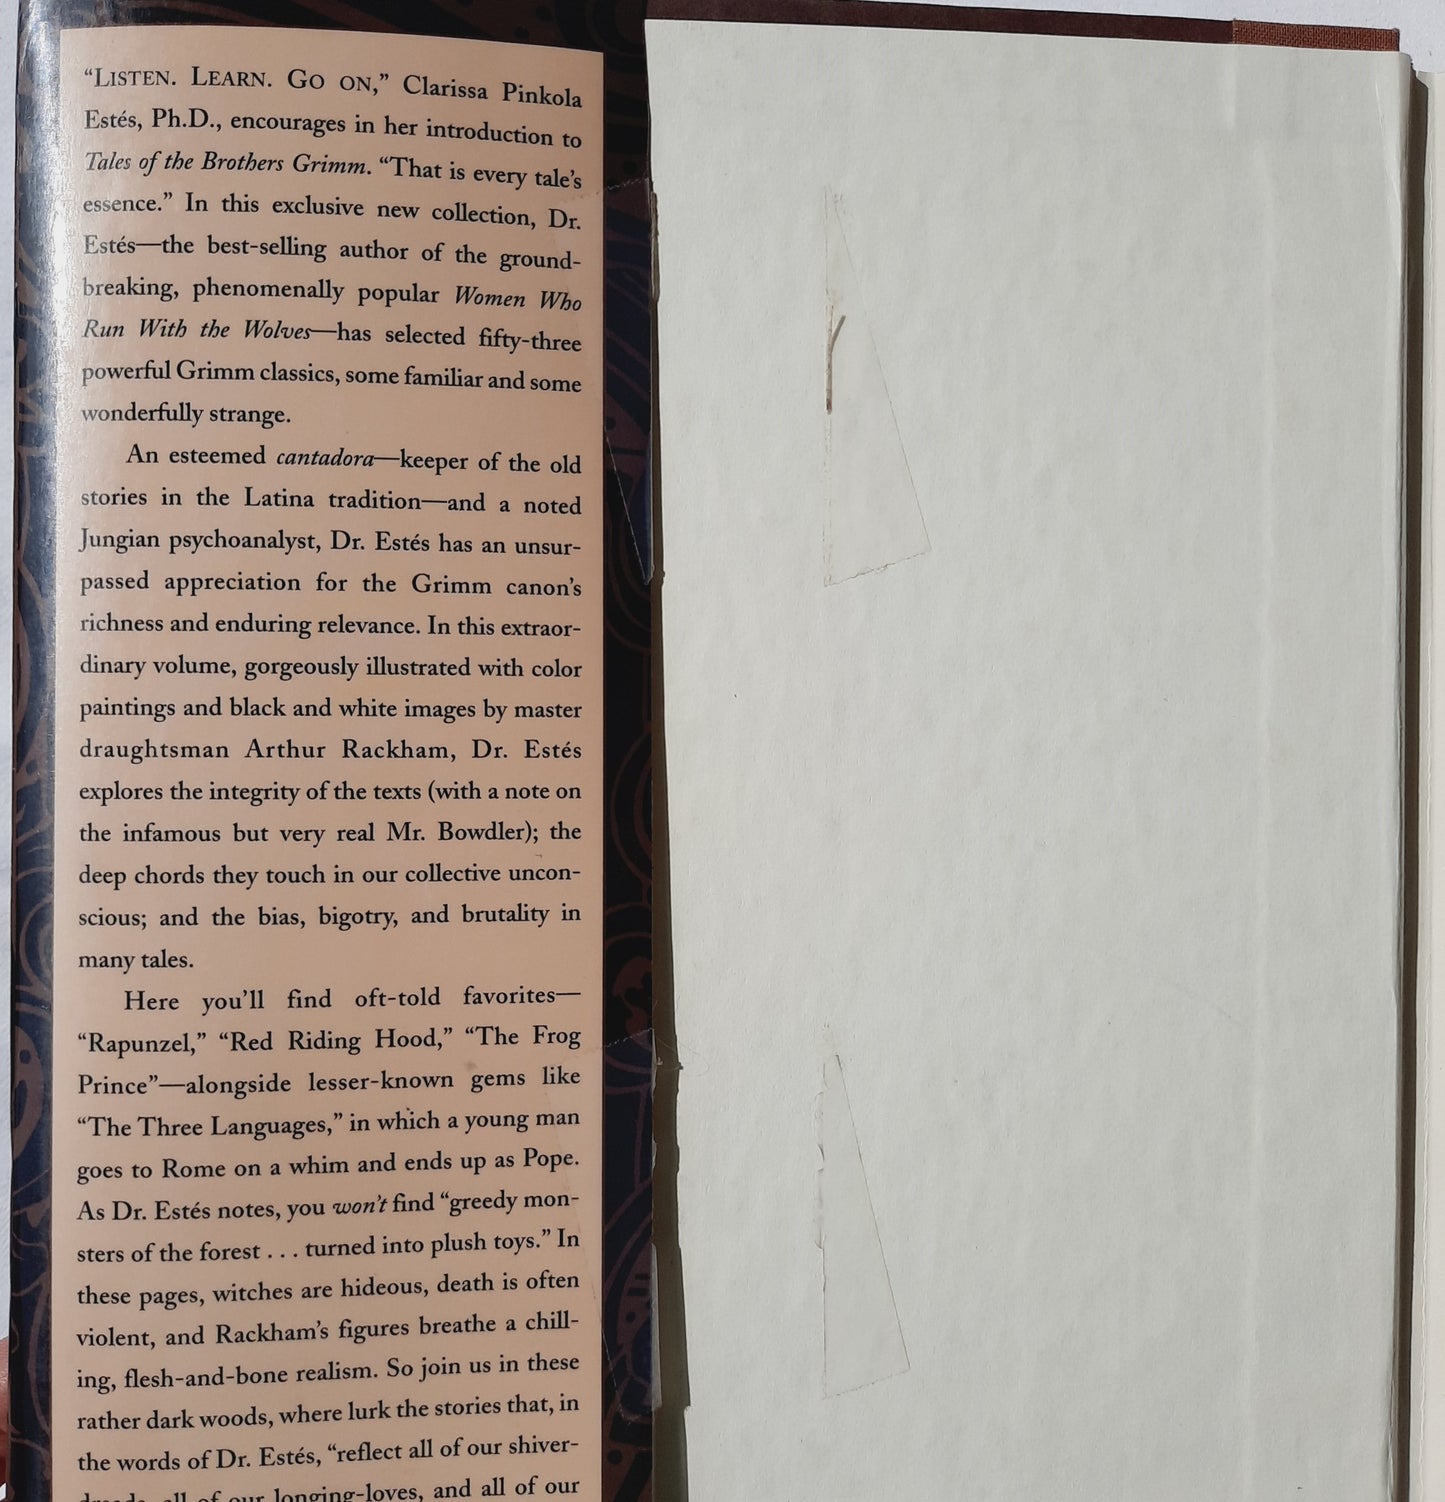 “LISTEN. LEARN. GO ON,” Clarissa Pinkola
Estés, Ph.D., encourages in her introduction to
Tales of the Brothers Grimm. “That is every tale’s
essence.” In this exclusive new collection, Dr.
Estés—the best-selling author of the ground-
breaking, phenomenally popular Women Who
Run With the Wolves—has selected fifty-three
powerful Grimm classics, some familiar and some
wonderfully strange.
An esteemed cantadora—keeper of the old
stories in the Latina tradition—and a noted
Jungian psychoanalyst, Dr. Estés has an unsur-
passed appreciation for the Grimm canon’s
richness and enduring relevance. In this extraor-
dinary volume, gorgeously illustrated with color
paintings and black and white images by master
draughtsman Arthur Rackham, Dr. Estés
explores the integrity of the texts (with a note on
the infamous but very real Mr. Bowdler); the
deep chords they touch in our collective uncon-
scious; and the bias, bigotry, and brutality in
many tales.
Here you’ll find oft-told favorites—
“Rapunzel,” “Red Riding Hood,” “The Frog
Prince”—alongside lesser-known gems like
“The Three Languages,” in which a young man
goes to Rome on a whim and ends up as Pope.
As Dr. Estés notes, you won’t find “greedy mon-
sters of the forest . . . turned into plush toys.” In
these pages, witches are hideous, death is often
violent, and Rackham’s figures breathe a chill-
ing, flesh-and-bone realism. So join us in these
rather dark woods, where lurk the stories that, in
the words of Dr. Estés, “reflect all of our shiver-
dreads, all of our longing-loves, and all of our